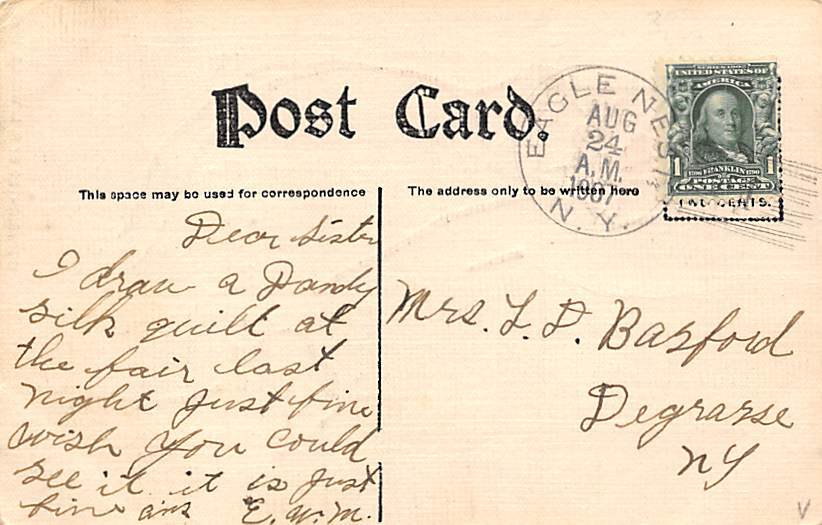 Post Card.
EAGLE NEST
AUG
24
A.M.
1907
N.Y.
SERIES 1902
UNITED STATES OF
AMERICA
1 1
FRANKLIN
POSTAGE
ONE CENT
TWO CENTS.
This space may be used for correspondence
The address only to be written here
Dear Sister
I draw a Dandy
silk quilt at
the fair last
night just fine
wish you could
see it it is just
fine ans E.W.M.
Mrs. L. D. Basford
Degrasse
NY